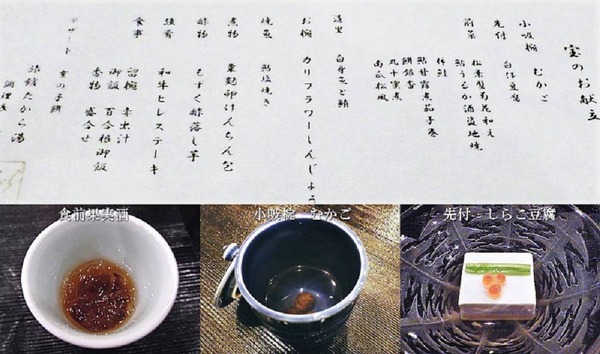 宴のお献立
小吸椀 むかご
先付 白仔豆腐
前菜 菊花和え
鮎うるか酒盗地焼
鮎甘露煮茄子巻
餅銀杏
丸十蜜煮
南瓜松風
造里 白身魚と鮪
お椀 カリフラワーしんじょう
焼魚 鮎塩焼き
煮物 けんちん包
酢物 もずく酢落し芋
強肴 和牛ヒレステーキ
食事 留椀 赤出汁
御飯 百合根御飯
香物 盛合せ
デザート の子餅
旅館たから湯
調理
食前果実酒
小吸椀 むかご
先付 しらこ豆腐